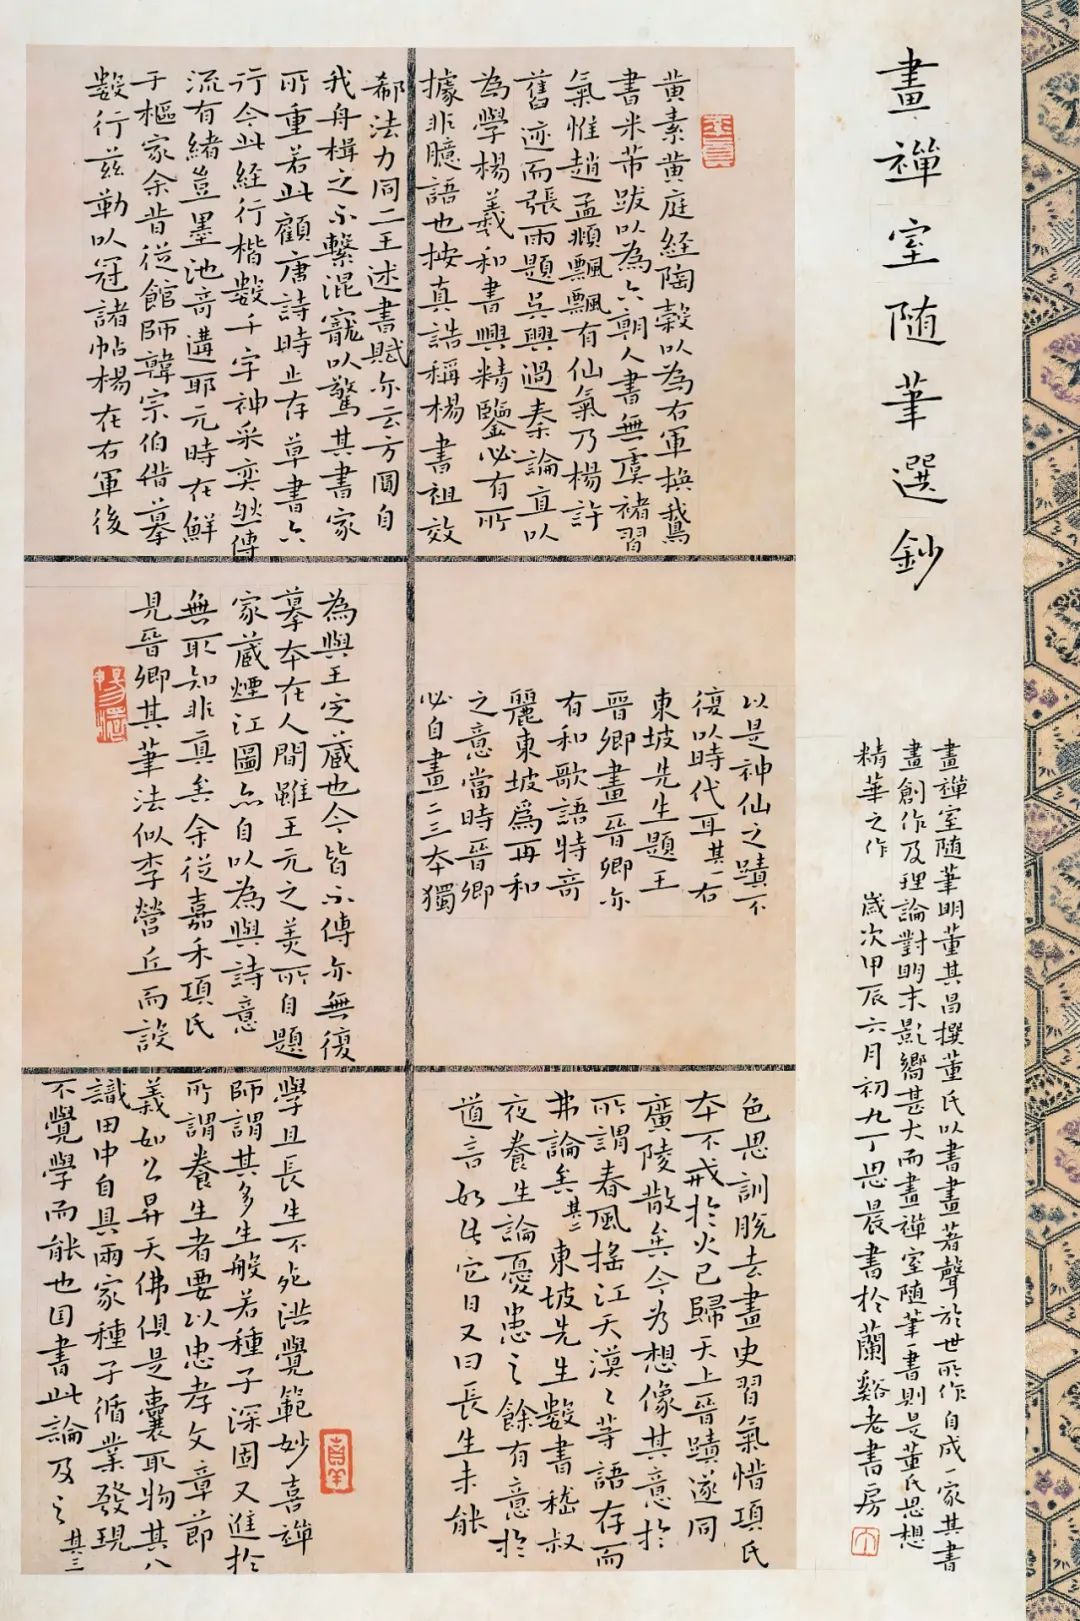 畫禪室随筆選鈔
畫禪室随筆明董其昌撰董氏以書畫著聲於世所作自成一家其書
畫創作及理論對明末影嚮甚大而畫禪室随筆一書則是董氏思想
精華之作 歲次甲辰六月初九丁思晨書於蘭谿老書房
黄素黄庭経陶穀以為右軍換鵞
書米芾跋以為六朝人書無虞褚習
氣惟趙孟頫飄飄有仙氣乃楊許
舊迹而張雨題吳興過秦論直以
為學楊羲和書興精鑒必有所
據非臆語也按真誥稱楊書祖效
郗法力同二王述書賦亦云方圓自
我舟楫之不繫混寵以驚其書家
所重若此顧唐詩時止存草書六
行今此経行楷數千字神采奕然傳
流有緒豈墨池奇遘耶元時在鮮
于樞家余昔從館師韓宗伯借摹
數行兹勒以冠諸帖楊在右軍後
以是神仙之蹟不
復以時代耳其一右
東坡先生題王
晉卿畫晉卿亦
有和歌語特奇
麗東坡爲再和
之意當時晉卿
必自畫二三本獨
為與王定藏也今皆不傳亦無復
摹本在人間雖王元之美所自題
家藏煙江圖亦自以為與詩意
無取知非真矣余從嘉禾項氏
見晉卿其筆法似李營丘而設
色思訓脫去畫史習氣惜項氏
本不戒於火已歸天上晉蹟遂同
廣陵散矣今為想像其意於
所謂春風搖江天漠〻等語存而
弗論矣其二東坡先生數書嵇叔
夜養生論憂患之餘有意於
道言如此它日又曰長生未能
學且長生不死洪覺範妙喜禪
師謂其多生般若種子深固又進於
所謂養生者要以忠孝文章節
義如公昇天佛俱是囊取物其八
識田中自具兩家種子循業發現
不覺學而能也因書此論及之其三